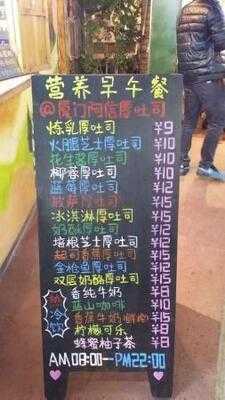 营养早午餐
@厦门阿信厚吐司
炼乳厚吐司 ¥9
火腿芝士厚吐司 ¥10
花生酱厚吐司 ¥10
椰蓉厚吐司 ¥10
蓝莓厚吐司 ¥12
菠萝厚吐司 ¥15
冰淇淋厚吐司 ¥15
奶酥厚吐司 ¥12
培根芝士厚吐司 ¥12
起司香蕉厚吐司 ¥15
金枪鱼厚吐司 ¥12
双层奶酪厚吐司 ¥15
香纯牛奶 ¥8
蓝山咖啡 ¥10
冷饮 香蕉牛奶 ¥15
柠檬可乐 ¥8
蜂蜜柚子茶 ¥8
AM08:00--PM22:00